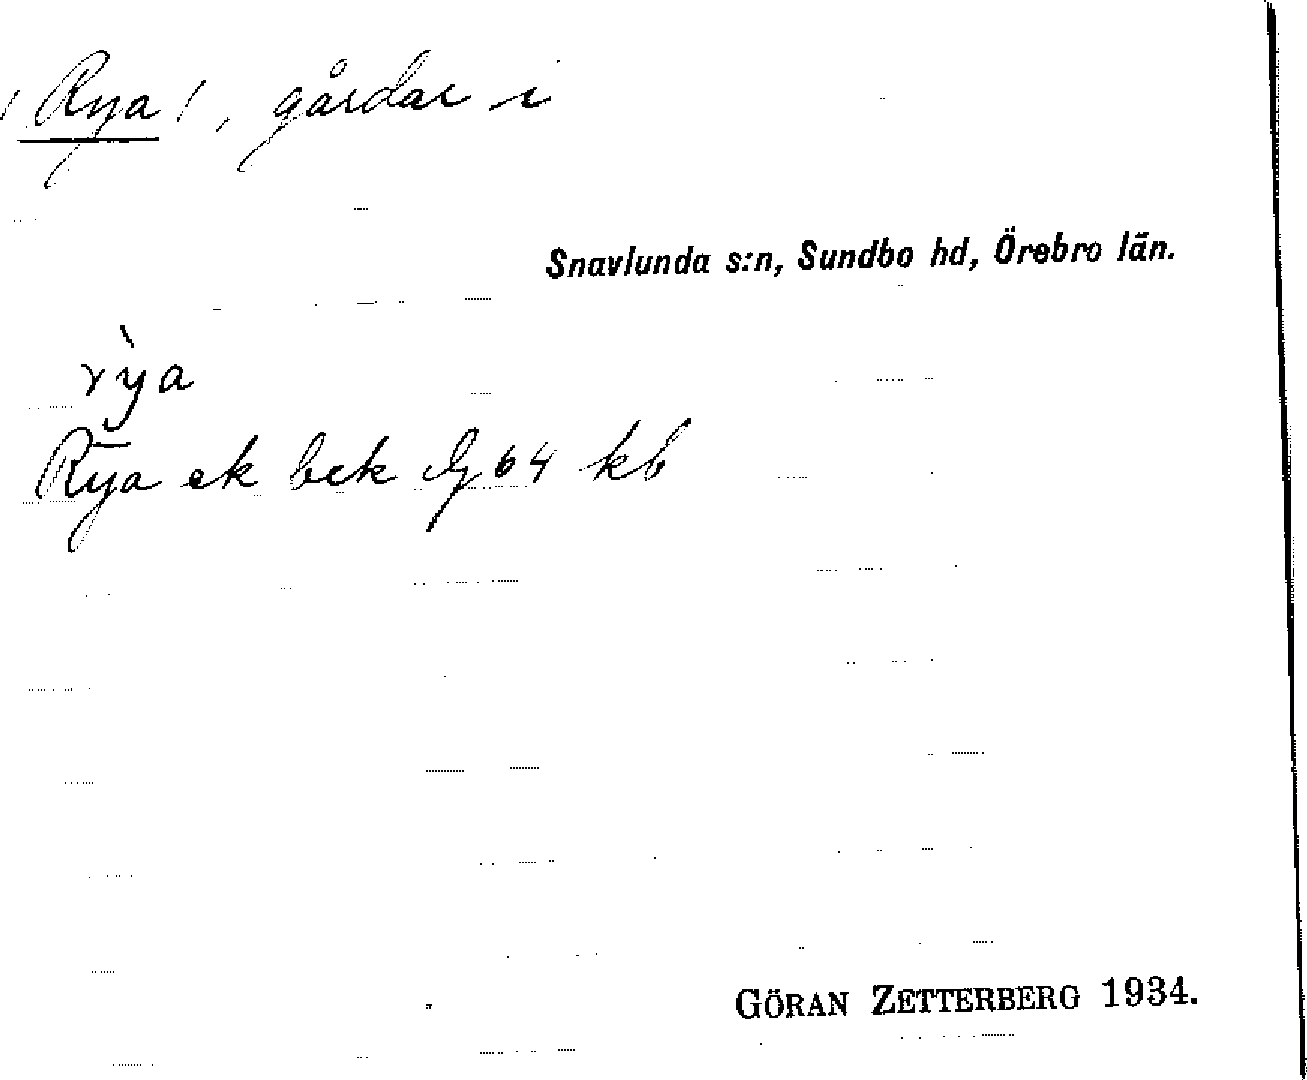 /Rya/, gårdar i
Snavlunda s:n, Sundbo hd, Örebro län.
rỳa
Rya ek bek 64 kb
GÖRAN ZETTERBERG 1934.